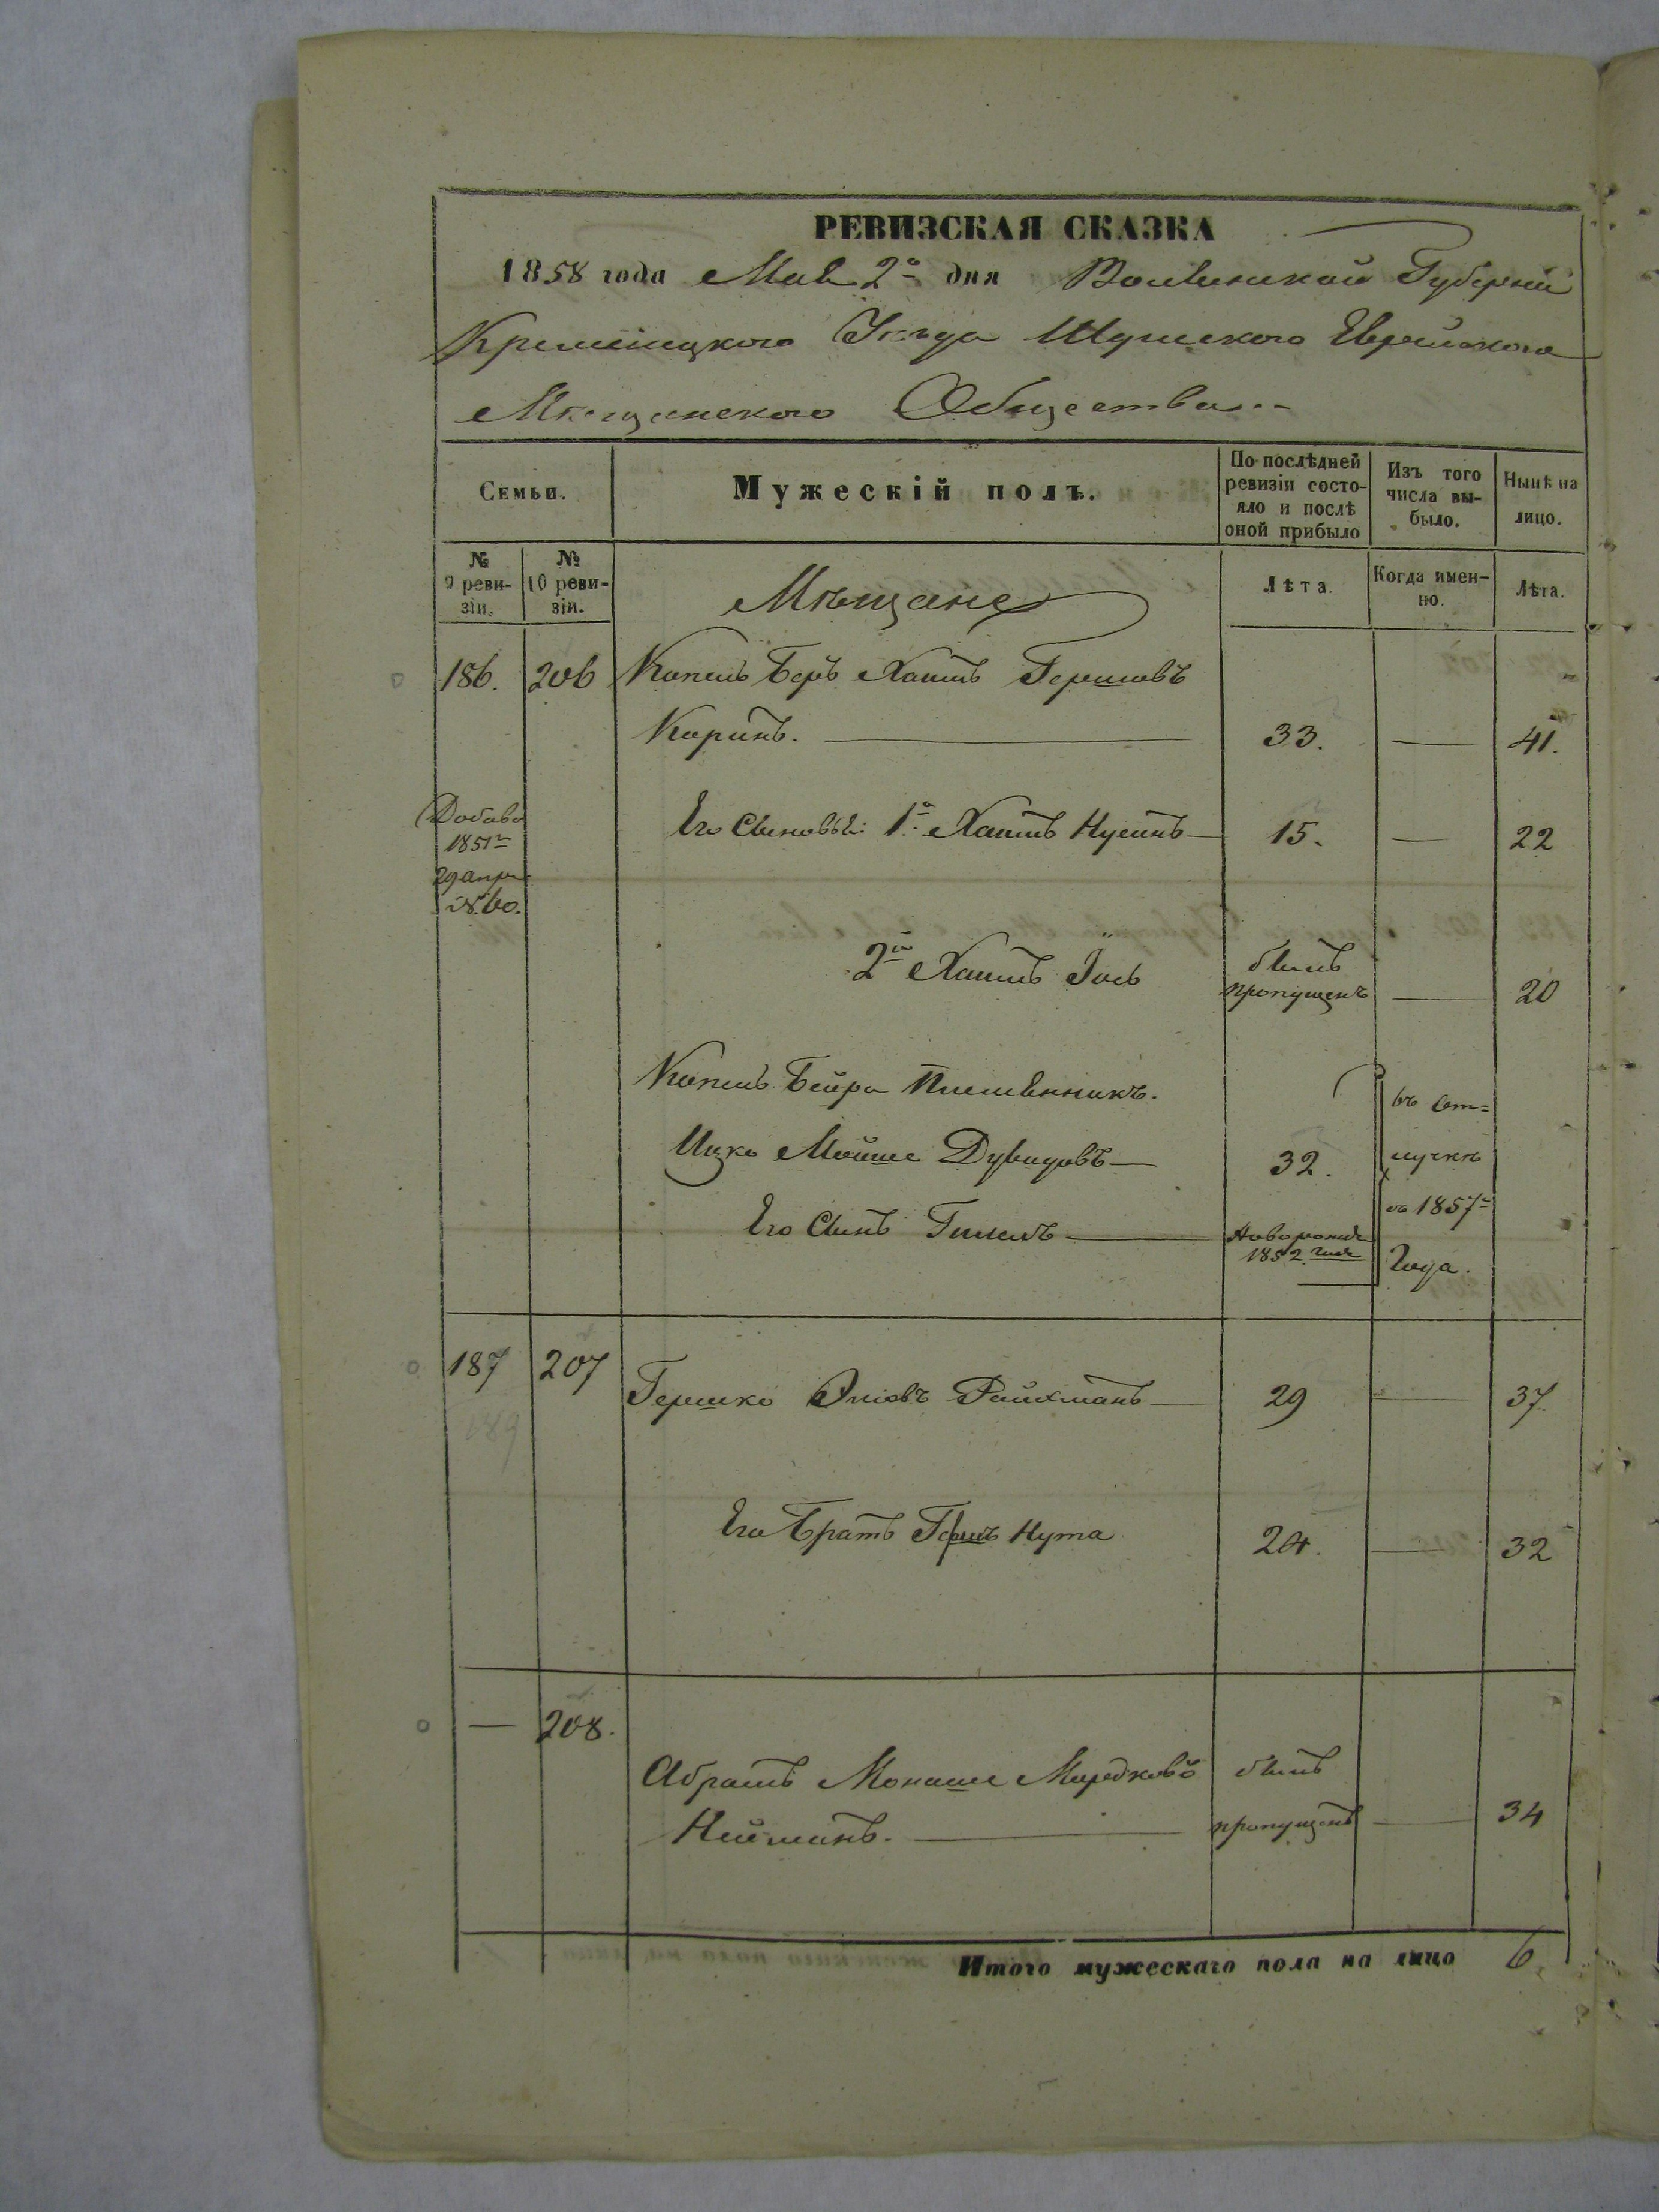 РЕВИЗСКАЯ СКАЗКА
1858 года Мая 2го дня Волынской Губерніи
Кременецкого Уѣзда Шумского Еврейского
Мѣщанского Общества
Семьи.
Мужескій полъ.
По послѣдней ревизіи состо-
яло и послѣ
оной прибыло
Изъ того
числа вы-
было.
Нынѣ на
лицо.
№
9 реви-
зіи.
№
10 реви-
зіи.
Мѣщане
Лѣта.
Когда имен-
но.
Лѣта.
186. 206 Копель Беръ Хаимъ Гершовъ
Коринъ. — 33. — 41.
Его Сыновья: 1й Хаимъ Нусинъ — 15. — 22
1851
№ 60.
2й Хаимъ Іось былъ
пропущенъ — 20
Копель Бейра Племянникъ.
Ицко Мойше Дувидовъ — 32.
Его Сынъ Гилель — 1852
въ от=
лучкѣ
съ 1857
Года.
187 207 Гершко Эліовъ Райхманъ — 29 — 37.
189
Его Братъ Герш Нута 24. — 32
— 208.
Абрамъ Монаше Мордковъ былъ
Нейманъ. — пропущенъ — 34
Итого мужескаго пола на лицо 6